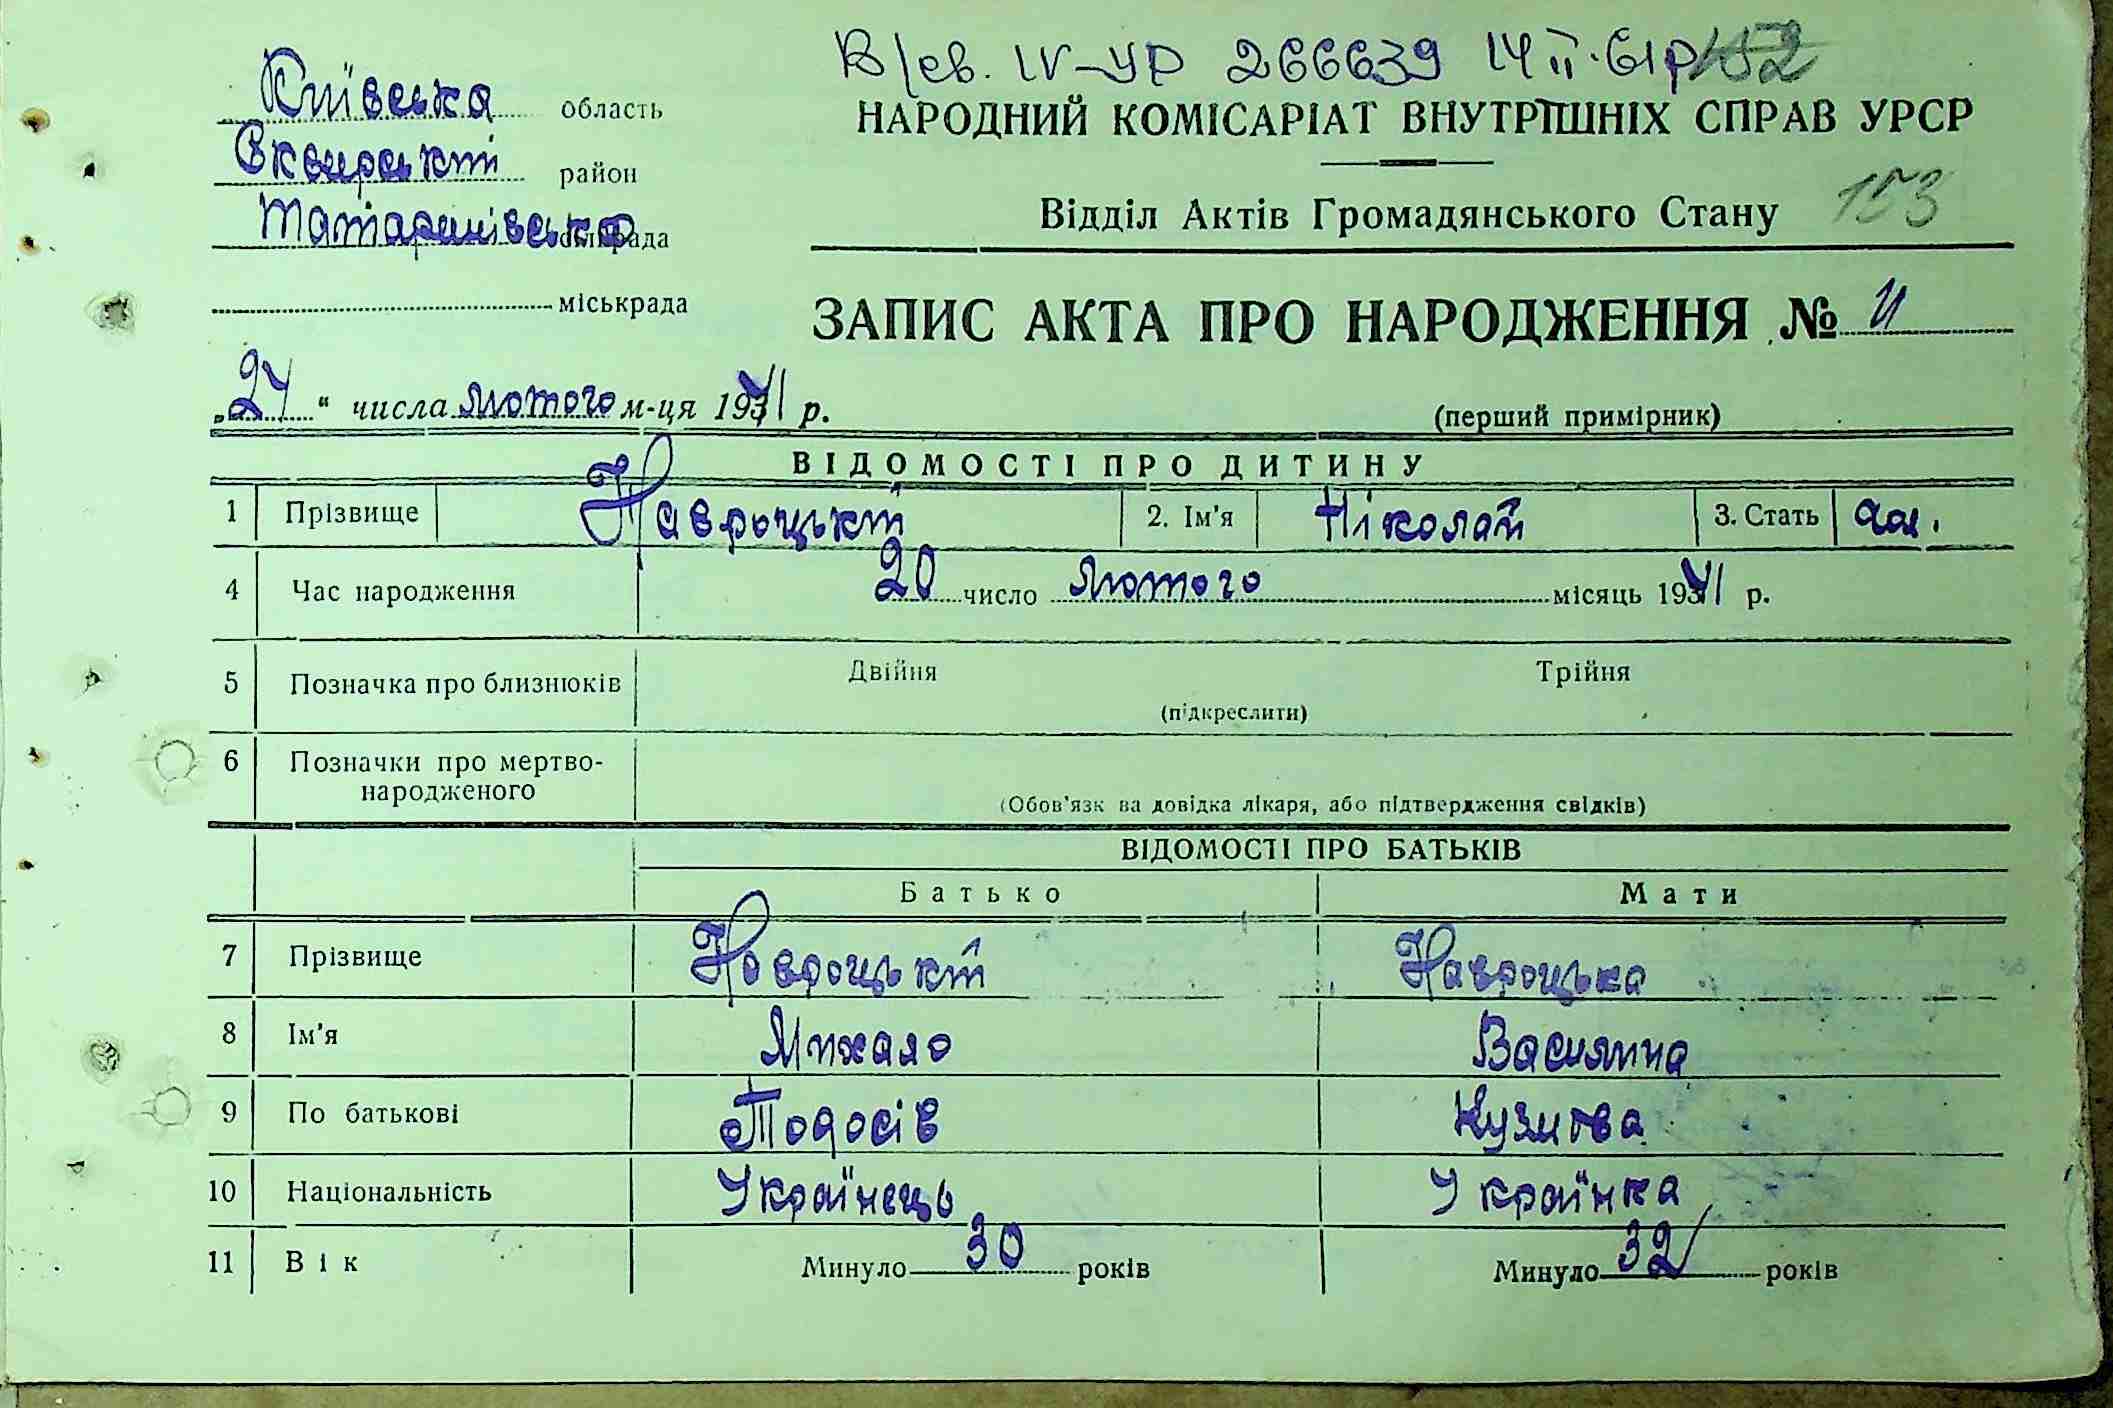 В/св. IV-УР 266639 14 II. 61р 152
Київська область
НАРОДНИЙ КОМІСАРІАТ ВНУТРІШНІХ СПРАВ УРСР
Сквирський район
Відділ Актів Громадянського Стану 153
Татаринівська сільрада
міськрада
ЗАПИС АКТА ПРО НАРОДЖЕННЯ №
„24“ числа лютого м-ця 1941 р.
(перший примірник)
ВІДОМОСТІ ПРО ДИТИНУ
1 Прізвище Навроцький 2. Ім'я Ніколай 3. Стать
4 Час народження 20 число лютого місяць 1941 р.
5 Позначка про близнюків Двійня Трійня
(підкреслити)
6 Позначки про мертво-
народженого
(Обов'язк ва довідка лікаря, або підтвердження свідків)
ВІДОМОСТІ ПРО БАТЬКІВ
Батько Мати
7 Прізвище Навроцький Навроцька
8 Ім'я Михало Василина
9 По батькові Тодосів Кузмова
10 Національність Українець Українка
11 Вік Минуло 30 років Минуло 32 років